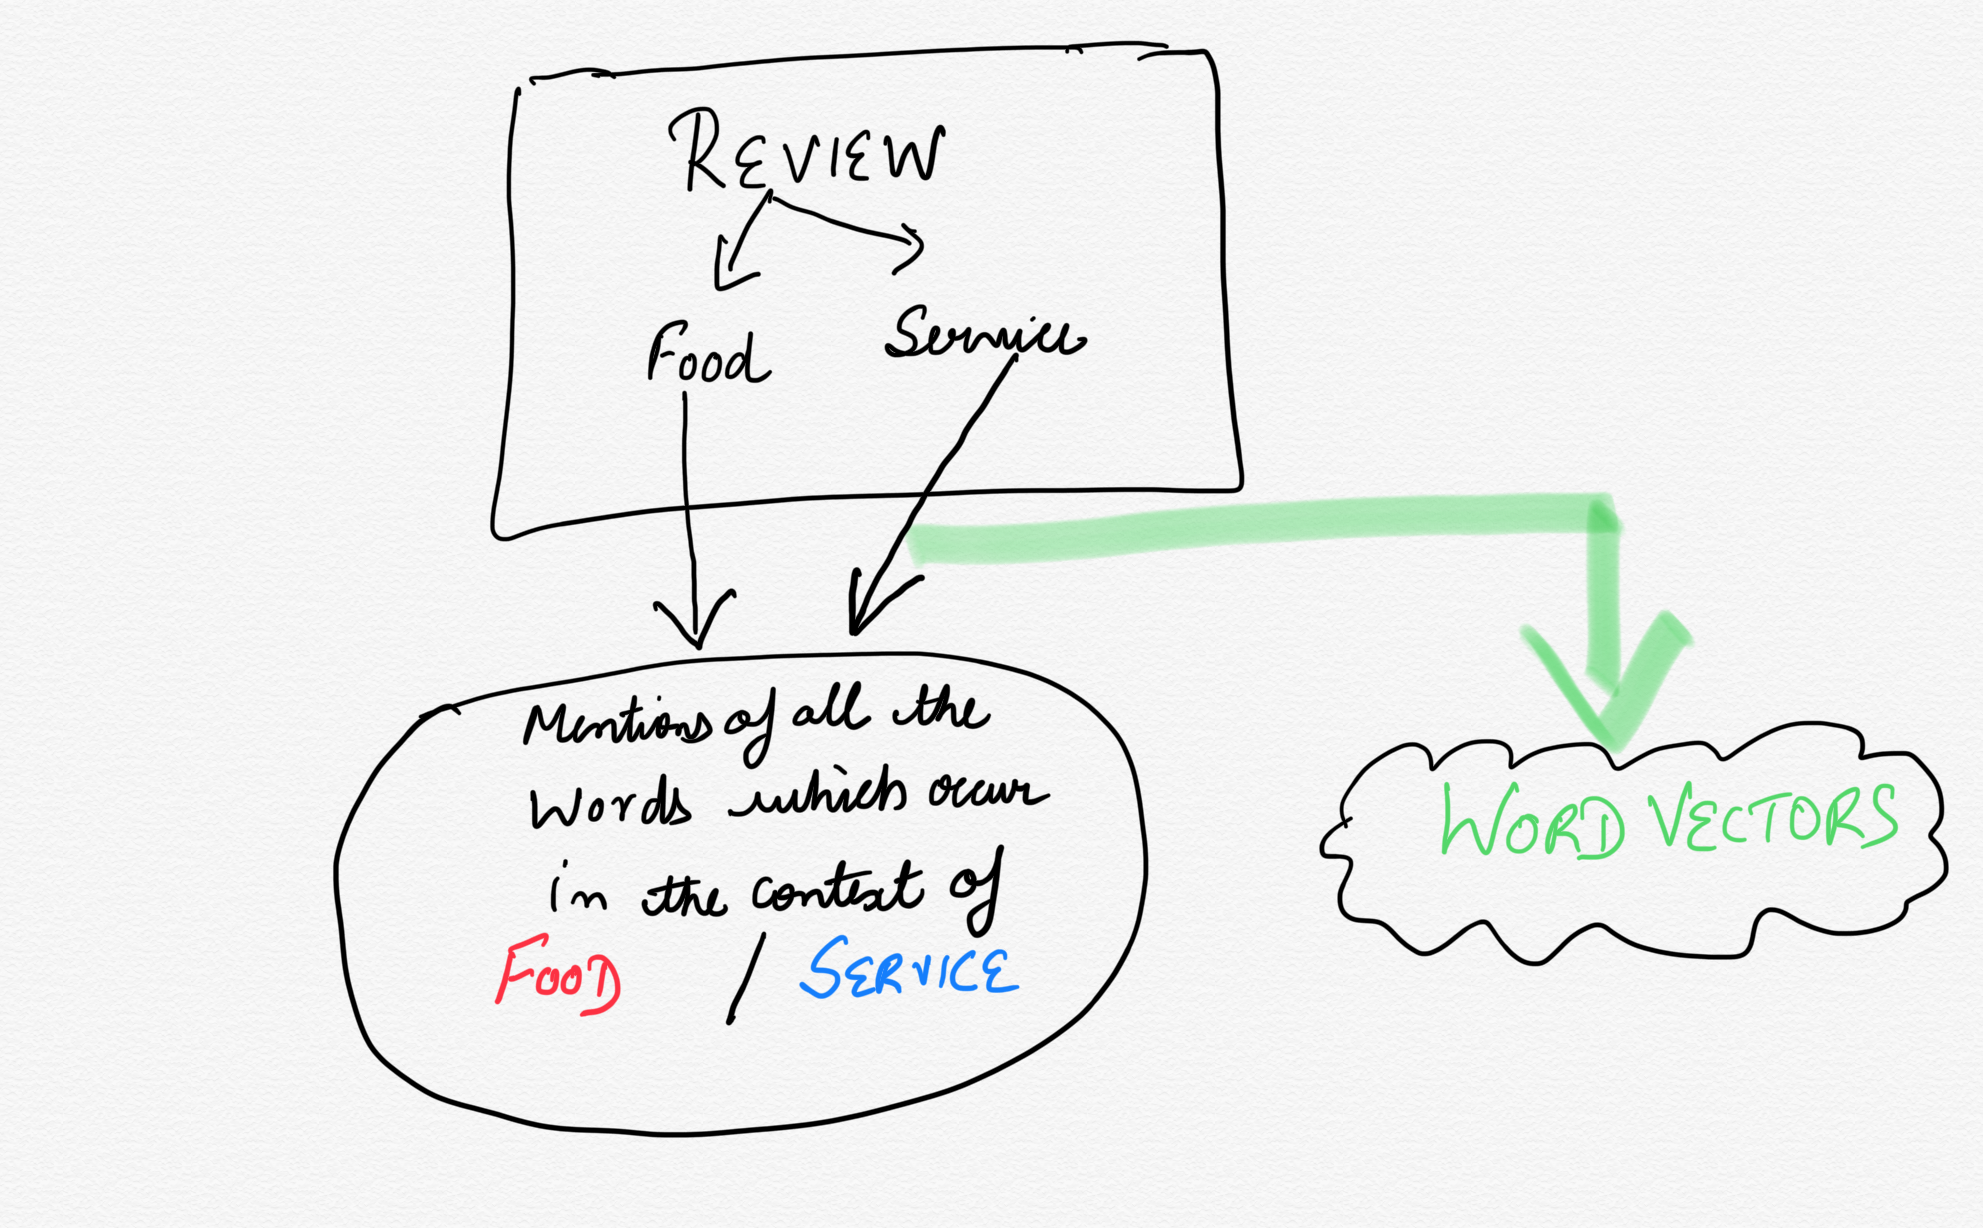 REVIEW
Food Service
Mentions of all the
words which occur
in the context of
FOOD / SERVICE
WORD VECTORS